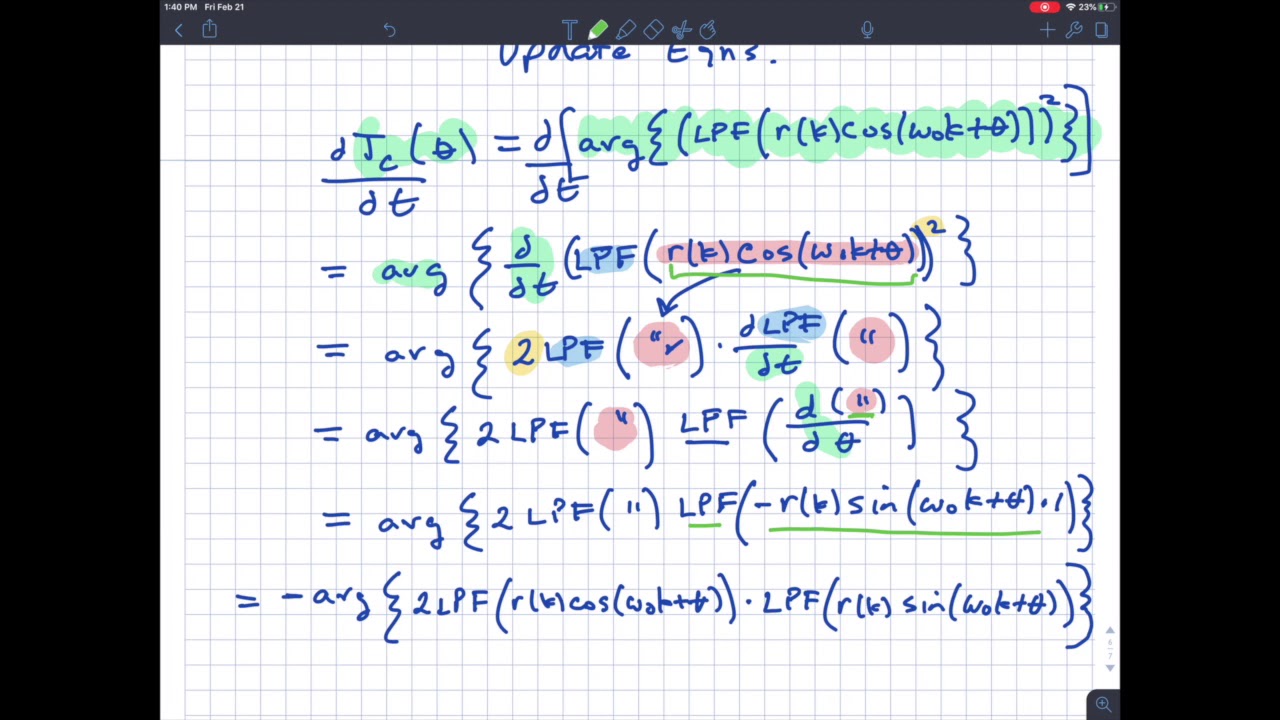 1:40 PM Fri Feb 21
23%
T
Update Eqns.
d J_c(θ)/dt = d/dt [arg{(LPF(r(k)cos(ω₀k+θ)))²}]
= arg{d/dt (LPF(r(k)cos(ω₀k+θ))²}
= arg{2 LPF(") · dLPF/dt (")}
= arg{2 LPF(") LPF(d(")/dθ)}
= arg{2 LPF(") LPF(-r(k)sin(ω₀k+θ)·1)}
= -arg{2LPF(r(k)cos(ω₀k+θ)) · LPF(r(k)sin(ω₀k+θ))}
6/7